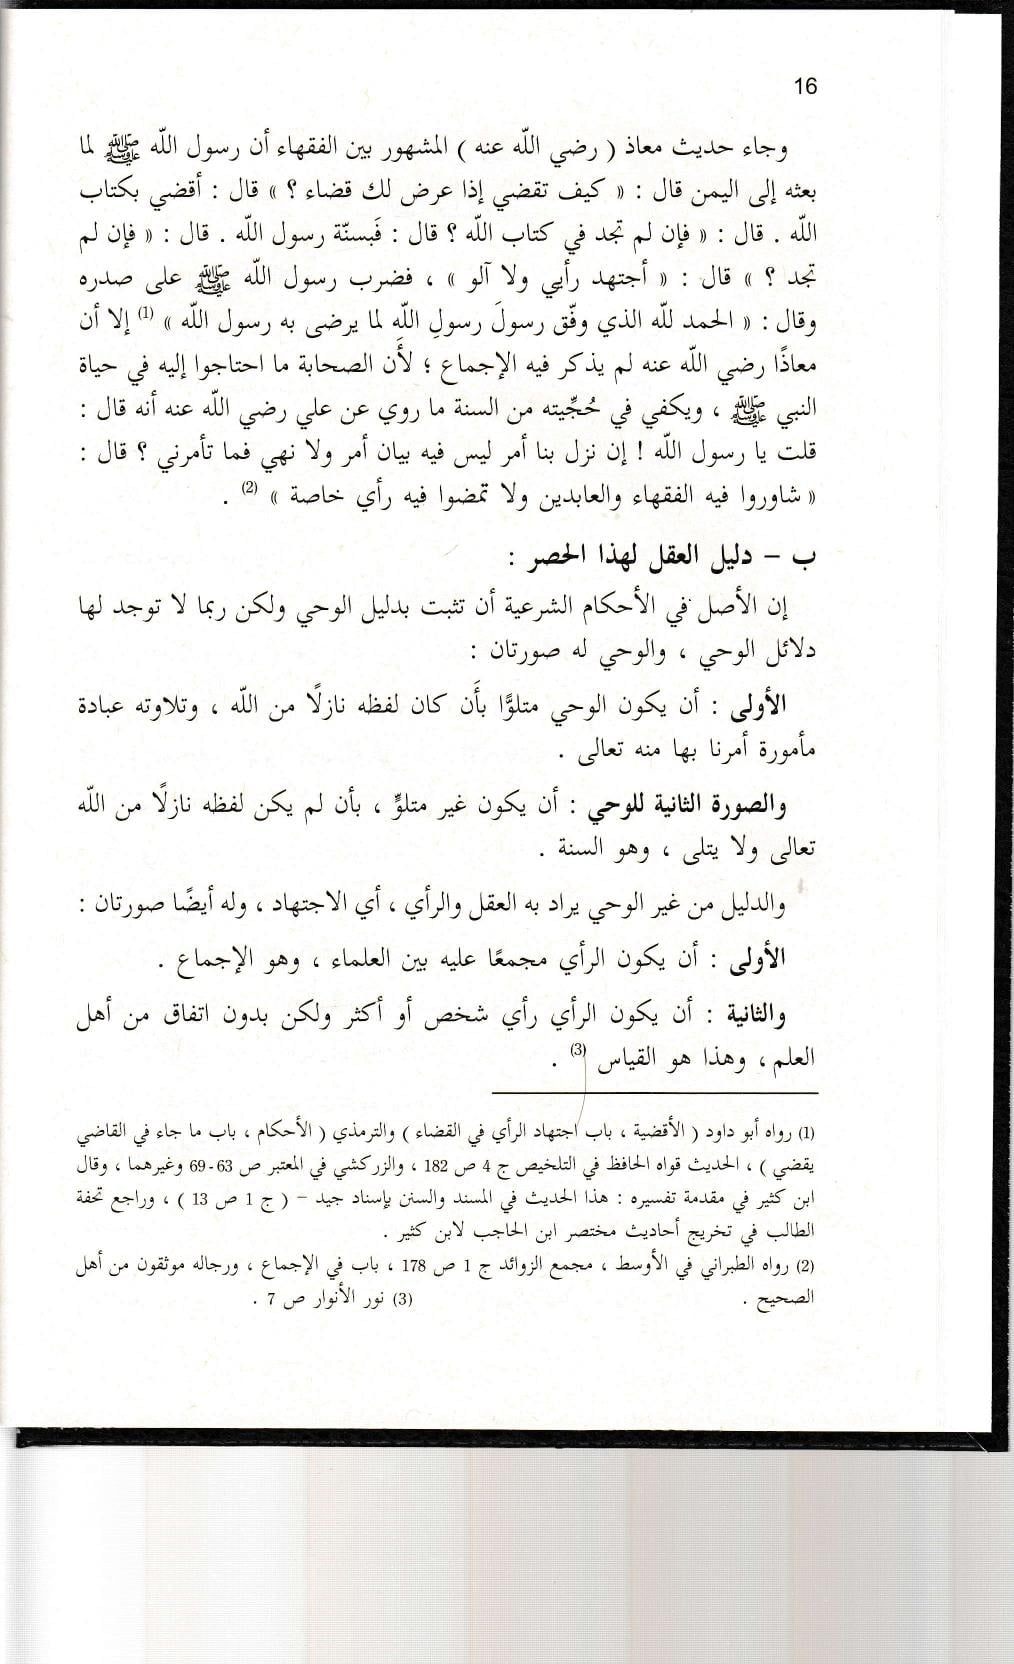 16
وجاء حديث معاذ ( رضي اللّه عنه ) المشهور بين الفقهاء أن رسول اللّه ﷺ لما
بعثه إلى اليمن قال : « كيف تقضي إذا عرض لك قضاء ؟ » قال : أقضي بكتاب
اللّه . قال : « فإن لم تجد في كتاب اللّه ؟ قال : فَبسنّة رسول اللّه . قال : « فإن لم
تجد ؟ » قال : « أجتهد رأيي ولا آلو » ، فضرب رسول اللّه ﷺ على صدره
وقال : « الحمد للّه الذي وفّق رسولَ رسولِ اللّه لما يرضى به رسول اللّه » (1) إلا أن
معاذًا رضي اللّه عنه لم يذكر فيه الإجماع ؛ لأَن الصحابة ما احتاجوا إليه في حياة
النبي ﷺ ، ويكفي في حُجِّيته من السنة ما روي عن علي رضي اللّه عنه أنه قال :
قلت يا رسول اللّه ! إن نزل بنا أمر ليس فيه بيان أمر ولا نهي فما تأمرني ؟ قال :
« شاوروا فيه الفقهاء والعابدين ولا تمضوا فيه رأي خاصة » (2) .
ب – دليل العقل لهذا الحصر :
إن الأصل في الأحكام الشرعية أن تثبت بدليل الوحي ولكن ربما لا توجد لها
دلائل الوحي ، والوحي له صورتان :
الأولى : أن يكون الوحي متلوًّا بأَن كان لفظه نازلًا من اللّه ، وتلاوته عبادة
مأمورة أمرنا بها منه تعالى .
والصورة الثانية للوحي : أن يكون غير متلوٍّ ، بأن لم يكن لفظه نازلًا من اللّه
تعالى ولا يتلى ، وهو السنة .
والدليل من غير الوحي يراد به العقل والرأي ، أي الاجتهاد ، وله أيضًا صورتان :
الأولى : أن يكون الرأي مجمعًا عليه بين العلماء ، وهو الإجماع .
والثانية : أن يكون الرأي رأي شخص أو أكثر ولكن بدون اتفاق من أهل
العلم ، وهذا هو القياس (3) .
(1) رواه أبو داود ( الأقضية ، باب اجتهاد الرأي في القضاء ) والترمذي ( الأحكام ، باب ما جاء في القاضي
يقضي ) ، الحديث قواه الحافظ في التلخيص ج 4 ص 182 ، والزركشي في المعتبر ص 63-69 وغيرهما ، وقال
ابن كثير في مقدمة تفسيره : هذا الحديث في المسند والسنن بإسناد جيد – ( ج 1 ص 13 ) ، وراجع تحفة
الطالب في تخريج أحاديث مختصر ابن الحاجب لابن كثير .
(2) رواه الطبراني في الأوسط ، مجمع الزوائد ج 1 ص 178 ، باب في الإجماع ، ورجاله موثقون من أهل
الصحيح . (3) نور الأنوار ص 7 .